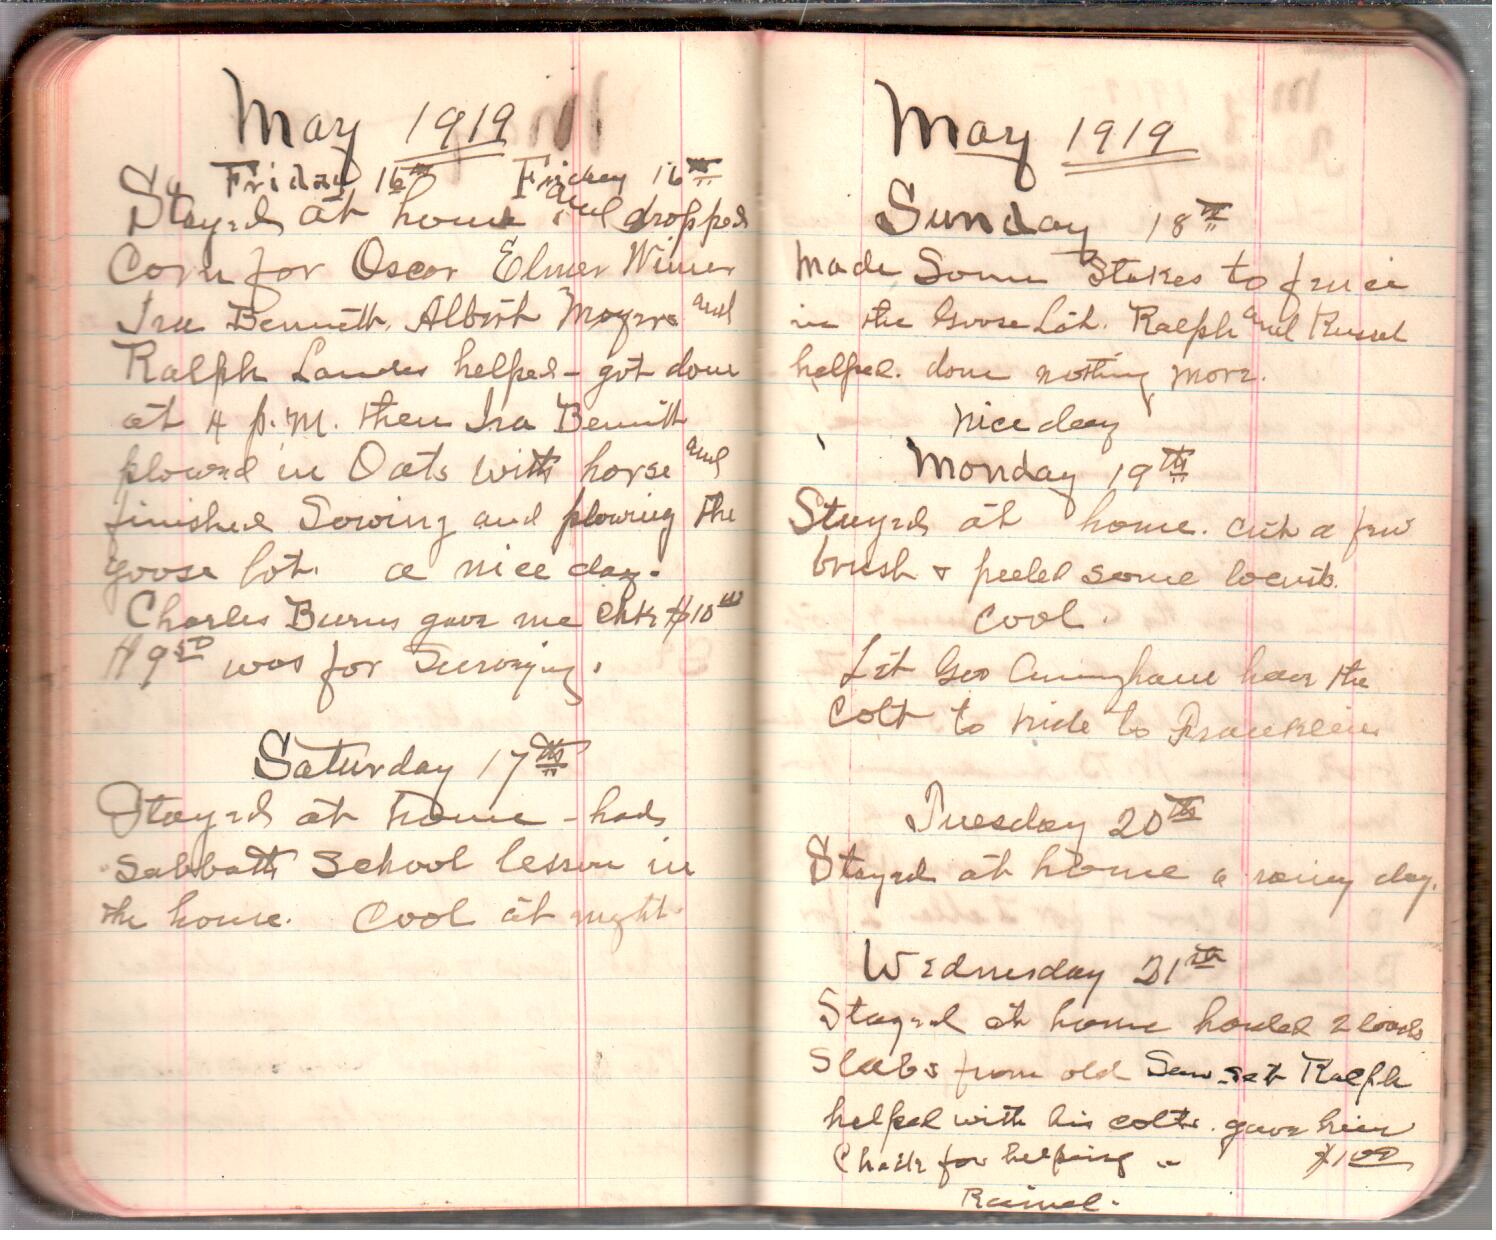 May 1919
Friday 16th Friday 16th
Stayed at home and dropped
Corn for Oscar Elmer Wimer
Ira Bennett, Albert Moyers and
Ralph Landes helped - got done
at 4 p.m. then Ira Bennett
plowed in Oats with horse and
finished Sowing and plowing the
goose lot. a nice day.
Charles Burns gave me Chk $10.00
$9.50 was for Surveying.
Saturday 17th
Stayed at home - had
Sabbath School lesson in
the house. Cool at night.
May 1919
Sunday 18th
Made Some Stakes to fence
in the Goose Lot. Ralph and Russel
helped. done nothing more.
nice day
Monday 19th
Stayed at home. cut a few
brush & peeled some locust.
Cool.
Let Geo Cunningham have the
Colt to ride to Franklin
Tuesday 20th
Stayed at home a rainy day.
Wednesday 21st
Stayed at home hauled 2 loads
Slabs from old Saw set Ralph
helped with his colts. gave him
Check for helping " $1.00
Rained.